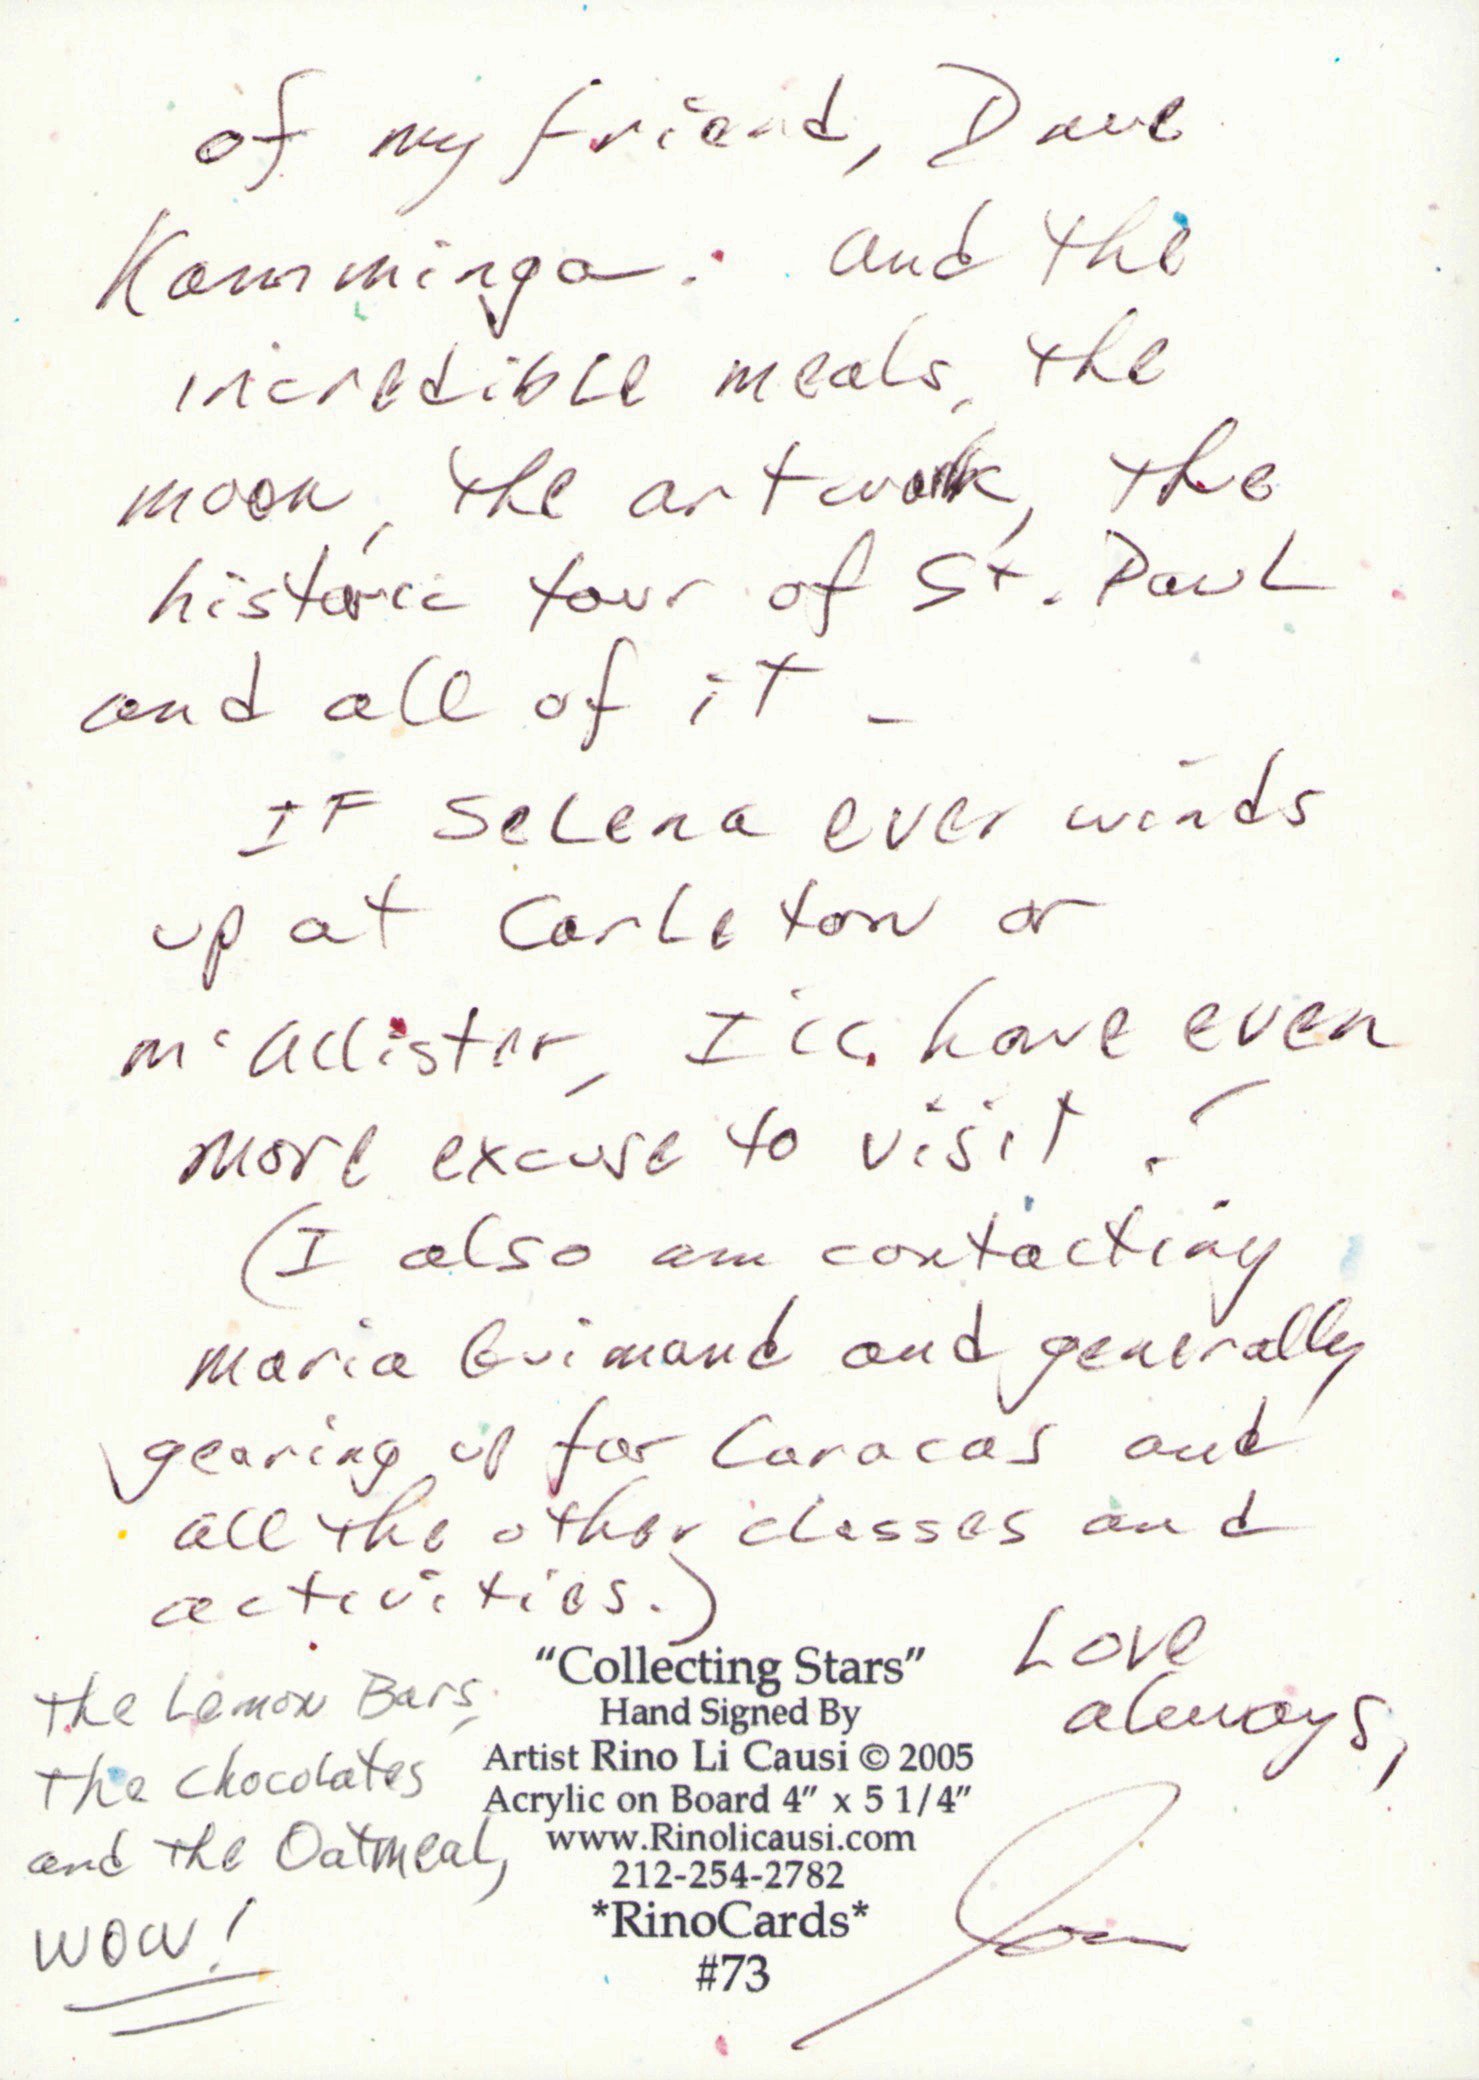 of my friend, Dave
Kamminga. And the
incredible meals, the
moon, the artwork, the
historic tour of St. Paul
and all of it -
If Selena ever winds
up at Carleton or
McAllister, I'll have even
more excuse to visit!
(I also am contacting
Maria Guinand and generally
gearing up for Caracas and
all the other classes and
activities.)
Love
always,
The Lemon Bars,
the chocolates
and the Oatmeal,
WOW!
"Collecting Stars"
Hand Signed By
Artist Rino Li Causi © 2005
Acrylic on Board 4" x 5 1/4"
www.Rinolicausi.com
212-254-2782
*RinoCards*
#73